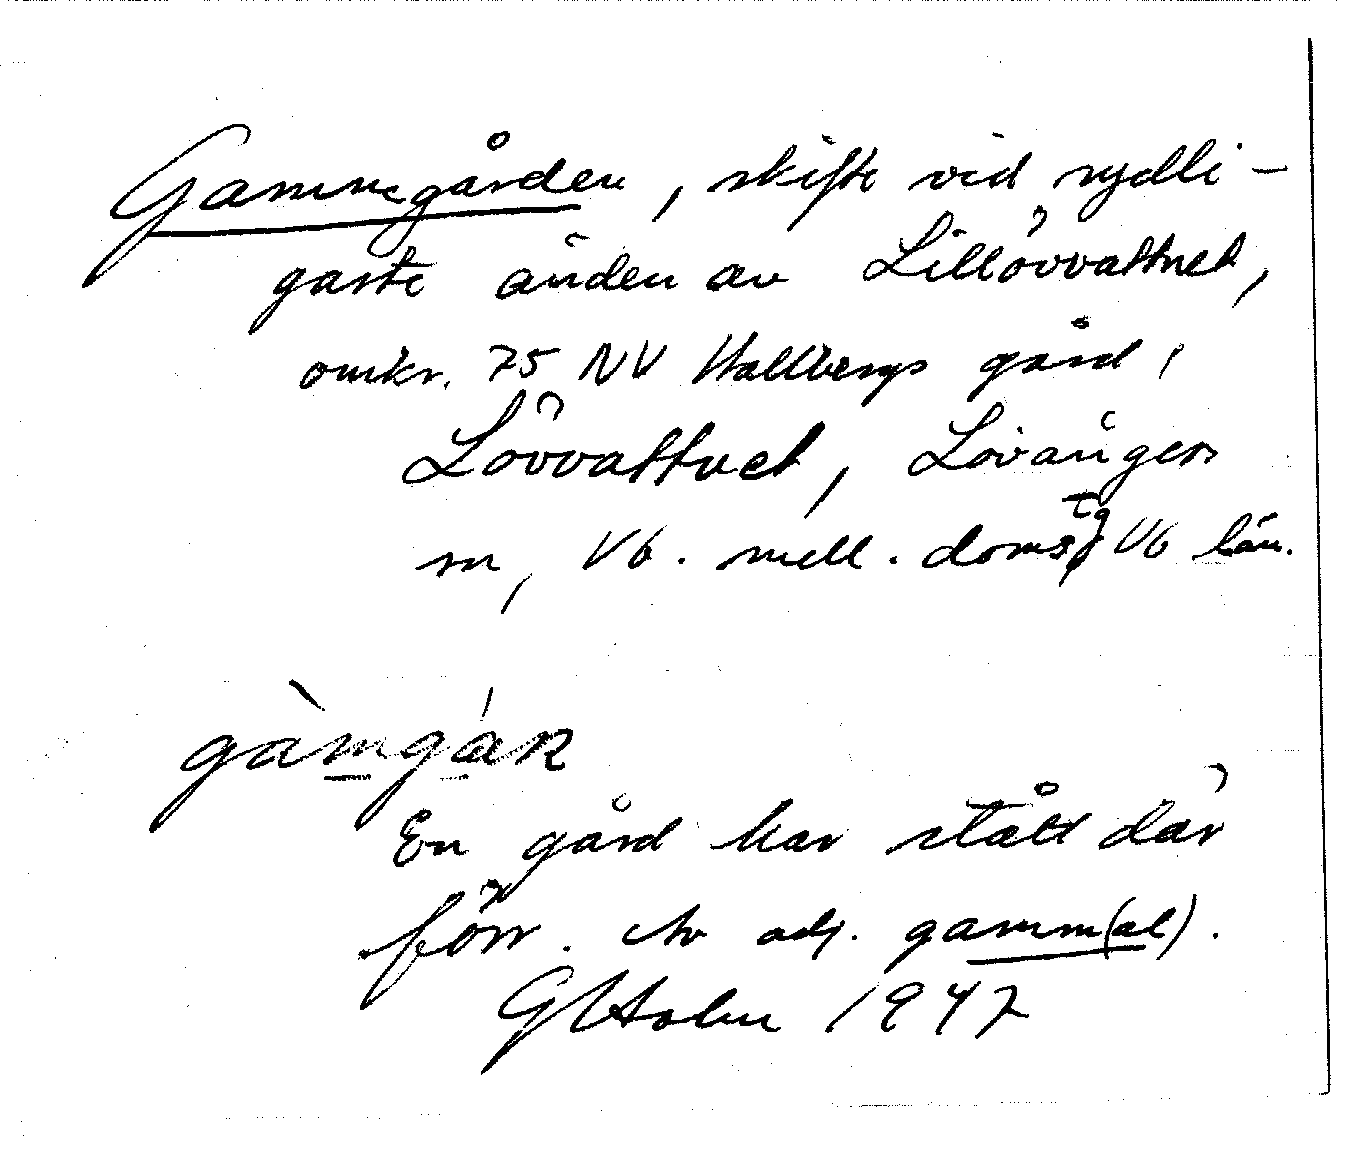 Gammgården, skifte vid sydli-
gaste änden av Lillövvattnet,
omkr. 75 NV Hallbergs gård i
Lövvattnet, Lövångers
sn, Vb. mell. doms tg Vb län.
gàmgár
En gård har stått där
förr. Av adj. gamm(al).
G Holm 1947